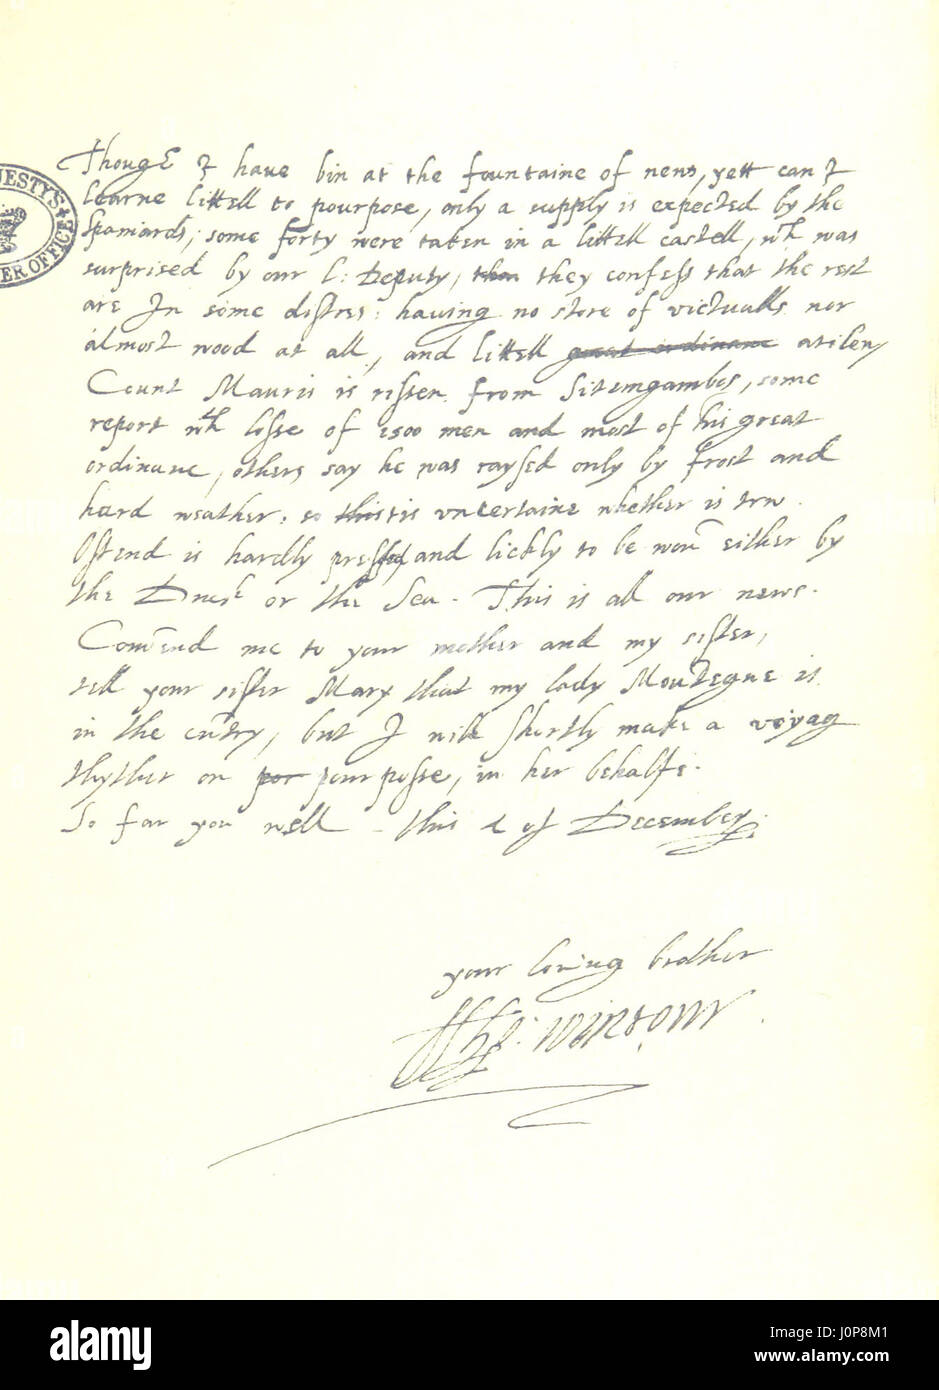 Though I have bin at the fountaine of news, yett can I
learne littell to pourpose, only a supply is expected by the
Spaniards; some forty were taken in a littell castell, wch was
surprised by our L: Deputy, than they confess that the rest
are In some distres: having no store of victualls nor
almost wood at all, and littell great ordinanc artilery
Count Mauris is rissen from Sitemgambos, some
report wth losse of 1500 men and most of his great
ordinance, others say he was raysed only by frost and
hard weather, so this tis uncertaine whether is trw.
Ostend is hardly pressed and lickly to be won either by
the Duck or the Sea. This is all our news.
Commend me to your mother and my sister,
tell your sister Mary that my lady Moutegue is
in the cuntry, but I will shortly make a voyag
thyther on por pourposse, in her behalfe.
So far you well - this 2 of December.
your loving brother
Wintour
ESTY'S
ER OFFICE
alamy
Image ID: J0P8M1
www.alamy.com